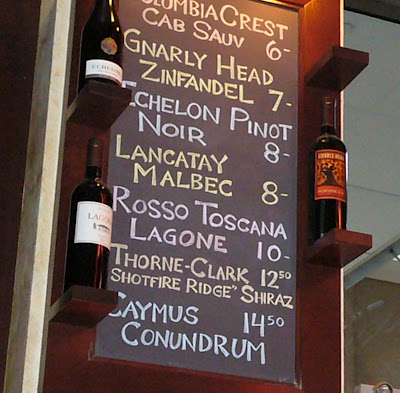 COLUMBIA CREST
CAB SAUV 6-
GNARLY HEAD
ZINFANDEL 7-
ECHELON PINOT
NOIR 8-
LANCATAY
MALBEC 8-
ROSSO TOSCANA
LAGONE 10-
THORNE-CLARK 12.50
SHOTFIRE RIDGE" SHIRAZ
CAYMUS 14.50
CONUNDRUM
ECHELON
LAGONE
GNARLY HEAD